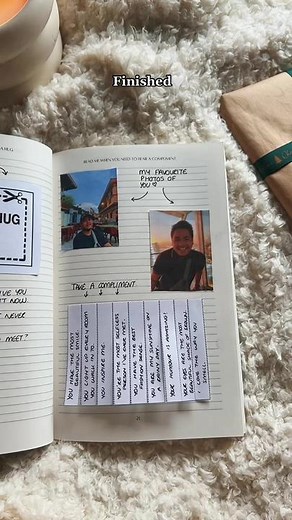 Finished
A HUG
HUG
VE YOU
T NOW.
T NEVER
TO MEET?
READ ME WHEN YOU NEED TO HEAR A COMPLIMENT
MY FAVOURITE
PHOTOS OF
YOU
TAKE A COMPLIMENT
YOU HAVE THE MOST
BEAUTIFUL SMILE.
YOU LIGHT UP EVERY ROOM
YOU WALK IN TO
YOU INSPIRE ME.
YOU'RE THE MOST SELFLESS
PERSON I'VE EVER MET.
YOU HAVE THE BEST
FASHION SENSE.
YOU ARE MY SUNSHINE ON
A RAINY DAY.
YOUR HUMOUR IS AMAZING!
YOUR EYES ARE THE MOST
BEAUTIFUL SHADE OF BROWN
I LOVE THE WAY YOU
SMELL.